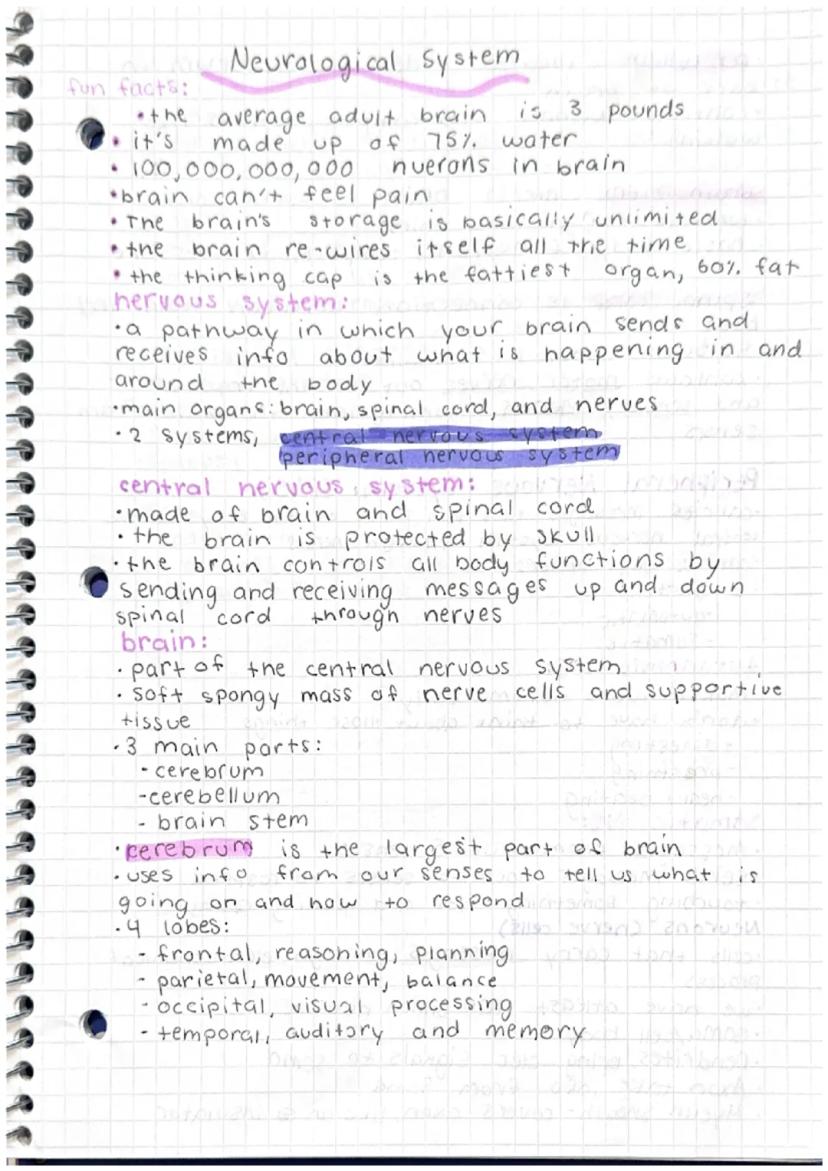 Neurological System
fun facts:
• the average adult brain is 3 pounds
• it's made up of 75% water
• 100,000,000,000 nuerons in brain
• brain can't feel pain
• The brain's storage is basically unlimited
• the brain re-wires itself all the time
• the thinking cap is the fattiest organ, 60% fat
nervous system:
• a pathway in which your brain sends and
receives info about what is happening in and
around the body
• main organs: brain, spinal cord, and nerves
• 2 systems, central nervous system
peripheral nervous system
central nervous system:
• made of brain and spinal cord
• the brain is protected by skull
• the brain controls all body functions by
sending and receiving messages up and down
spinal cord through nerves
brain:
• part of the central nervous system
• soft spongy mass of nerve cells and supportive
tissue
• 3 main parts:
- cerebrum
- cerebellum
- brain stem
• cerebrum is the largest part of brain
• uses info from our senses to tell us what is
going on and how to respond
• 4 lobes:
- frontal, reasoning, planning
- parietal, movement, balance
- occipital, visual processing
- temporal, auditory and memory